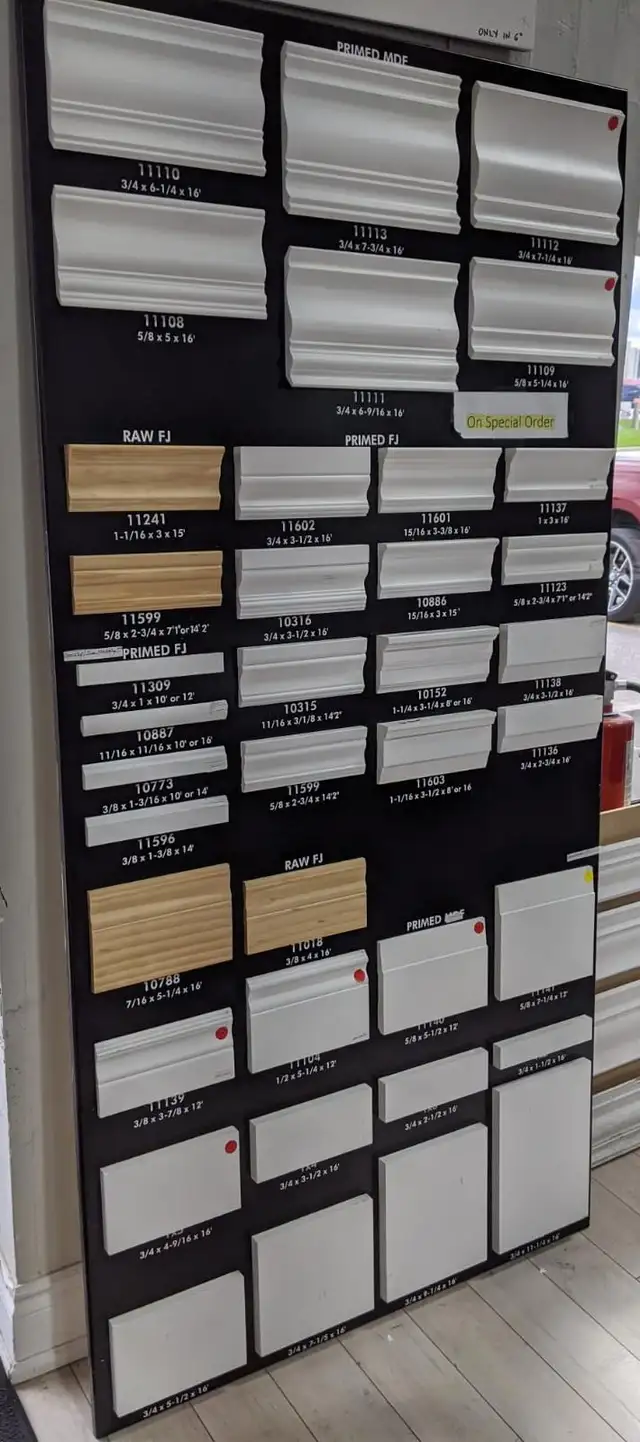 ONLY IN 6"
PRIMED MDF
11110
3/4 x 6-1/4 x 16'
11113
3/4 x 7-3/4 x 16'
11112
3/4 x 7-1/4 x 16'
11108
5/8 x 5 x 16'
11111
3/4 x 6-9/16 x 16'
11109
5/8 x 5-1/4 x 16'
On Special Order
RAW FJ
PRIMED FJ
11241
1-1/16 x 3 x 15'
11602
3/4 x 3-1/2 x 16'
11601
15/16 x 3-3/8 x 16'
11137
1 x 3 x 16'
11599
5/8 x 2-3/4 x 7'1"or14'2"
10316
3/4 x 3-1/2 x 16'
10886
15/16 x 3 x 15'
11123
5/8 x 2-3/4 x 7'1" or 14'2"
PRIMED FJ
11309
3/4 x 1 x 10' or 12'
10315
11/16 x 3/1/8 x 14'2"
10152
1-1/4 x 3-1/4 x 8' or 16'
11138
3/4 x 3-1/2 x 16'
10887
11/16 x 11/16 x 10' or 16'
10773
3/8 x 1-3/16 x 10' or 14'
11599
5/8 x 2-3/4 x 14'2"
11603
1-1/16 x 3-1/2 x 8' or 16
11136
3/4 x 2-3/4 x 16'
11596
3/8 x 1-3/8 x 14'
RAW FJ
10788
7/16 x 5-1/4 x 16'
11018
3/8 x 4 x 16'
PRIMED MDF
11140
5/8 x 5-1/2 x 12'
11141
5/8 x 7-1/4 x 12'
11139
3/8 x 3-7/8 x 12'
11104
1/2 x 5-1/4 x 12'
3/4 x 2-1/2 x 16'
3/4 x 1-1/2 x 16'
3/4 x 4-9/16 x 16'
1X4
3/4 x 3-1/2 x 16'
3/4 x 5-1/2 x 16'
3/4 x 7-1/5 x 16'
3/4 x 9-1/4 x 16'
3/4 x 11-1/4 x 16'